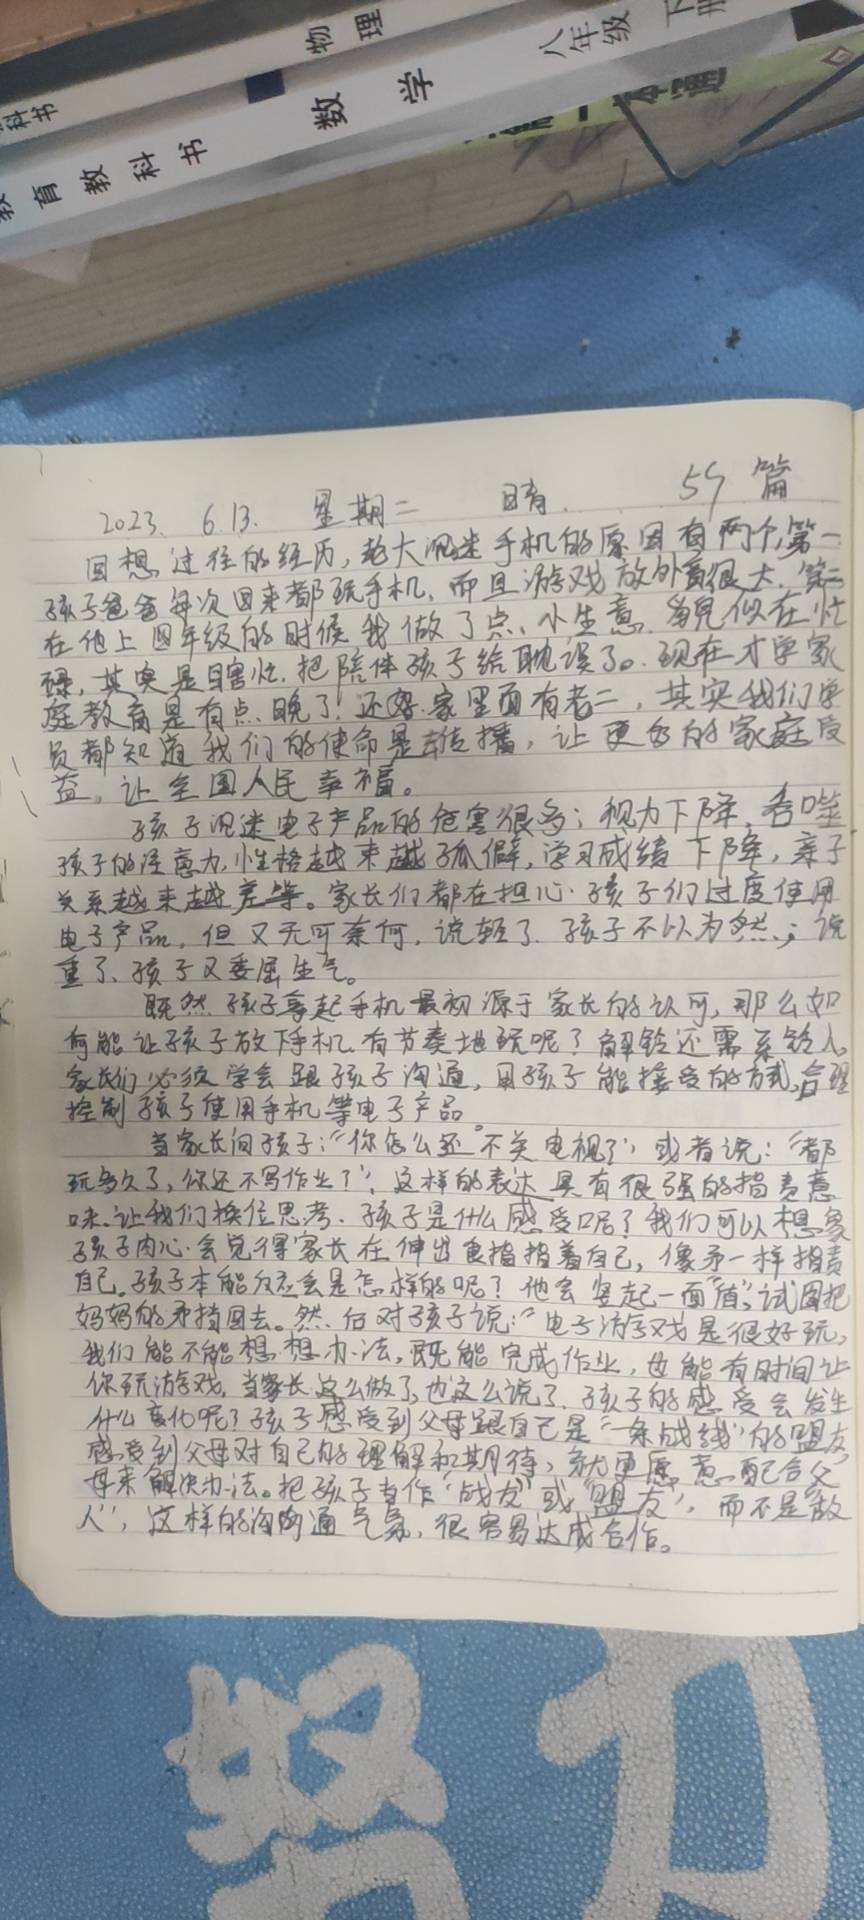 物理
科书
八年级 下册
教育教科书 数学
一本通
2023. 6.13. 星期二 晴. 59篇
回想过往的经历,老大沉迷手机的原因有两个,第一
孩子爸爸每次回来都玩手机,而且游戏放外音很大.第二
在他上四年级的时候我做了点小生意.看似在忙
碌,其实是瞎忙.把陪伴孩子给耽误了。现在才学家
庭教育是有点晚了!还好家里面有老二,其实我们学
员都知道我们的使命是传播,让更多的家庭受
益,让全国人民幸福。
孩子沉迷电子产品的危害很多;视力下降,吞噬
孩子的注意力,性格越来越孤僻,学习成绩下降,亲子
关系越来越差等。家长们都在担心.孩子们过度使用
电子产品,但又无可奈何,说轻了、孩子不以为然;说
重了、孩子又委屈生气。
既然孩子拿起手机最初源于家长的认可,那么如
何能让孩子放下手机.有节奏地玩呢?解铃还需系铃人
家长们必须学会跟孩子沟通,用孩子能接受的方式,合理
控制孩子使用手机等电子产品
当家长问孩子:“你怎么还不关电视了”或者说:“都
玩多久了,你还不写作业了”,这样的表达具有很强的指责意
味.让我们换位思考.孩子是什么感受呢?我们可以想象
孩子内心.会觉得家长在伸出食指指着自己,像矛一样指责
自己。孩子本能反应会是怎样的呢?他会竖起一面“盾”,试图把
妈妈的矛挡回去。然后对孩子说:“电子游戏是很好玩,
我们能不能想想办法,既能完成作业,也能有时间让
你玩游戏,当家长这么做了,也这么说了.孩子的感受会发生
什么变化呢?孩子感受到父母跟自己是“一条战线”的盟友,
感受到父母对自己的理解和期待,就更愿意配合父
母来解决办法。把孩子当作“战友”或“盟友”,而不是“敌
人”,这样的沟通气氛,很容易达成合作。
努力